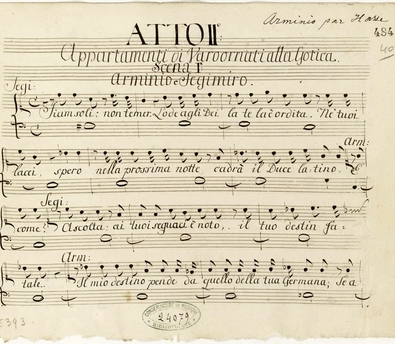 Arminio par Hasse
484
40
ATTO II:
Appartamenti di Varo ornati alla Gotica.
Scena I.
Arminio e Segimiro.
Segi:
Siam soli: non temer. Lode agli Dei la te la è ordita. Ne' tuoi
Arm:
lacci, spero nella prossima notte cadrà il Duce latino. E
Segi:
come? Ascolta: ai tuoi seguaci è noto, il tuo destin fa-
Arm:
tale. Il mio destino pende da quello della tua Germana; se a
24079
5393.